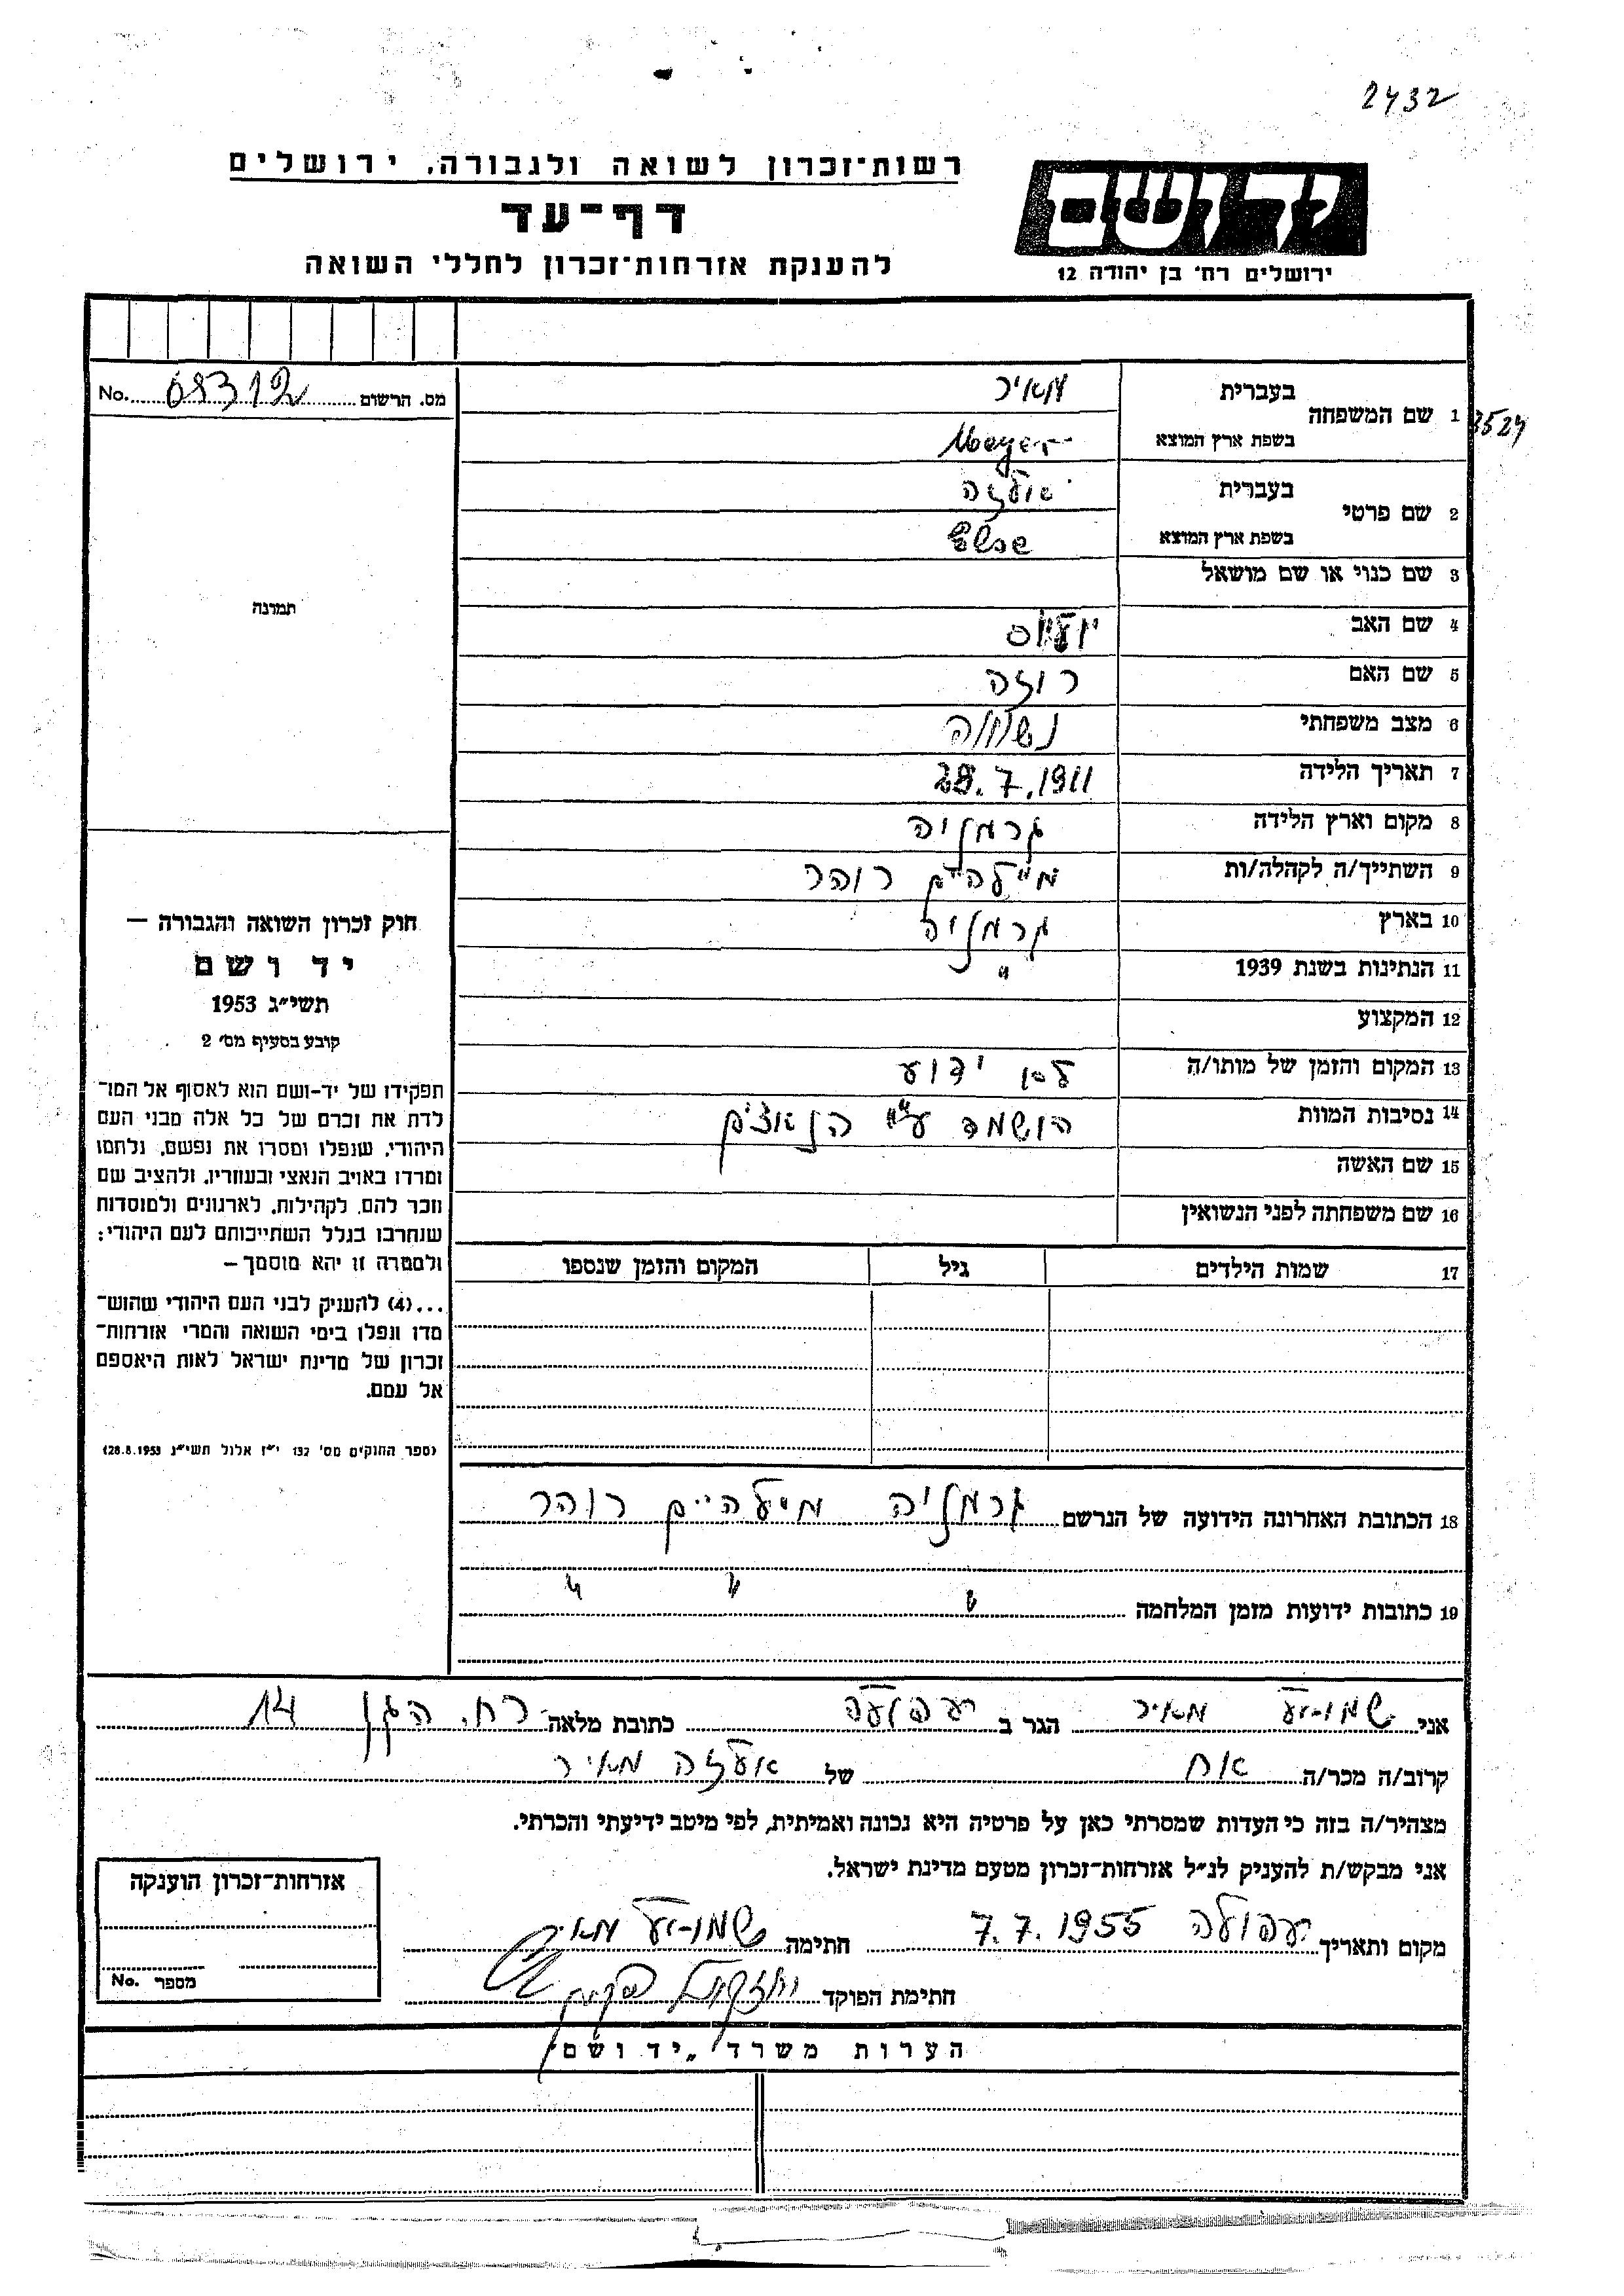 2432
רשות־זכרון לשואה ולגבורה, ירושלים
יד ושם
דף־עד
להענקת אזרחות־זכרון לחללי השואה
ירושלים רח׳ בן יהודה 12
מס. הרשום 08312 No.
3524
1 שם המשפחה
בעברית מאיר
בשפת ארץ המוצא Meyer
2 שם פרטי
בעברית אלזה
בשפת ארץ המוצא Else
3 שם כנוי או שם מושאל
4 שם האב יוליוס
5 שם האם רוזה
6 מצב משפחתי נשואה
7 תאריך הלידה 28.7.1911
8 מקום וארץ הלידה גרמניה
9 השתייך/ה לקהלה/ות מילהיים רוהר
10 בארץ גרמניה
11 הנתינות בשנת 1939 "
12 המקצוע
13 המקום והזמן של מותו/ה לא ידוע
14 נסיבות המוות הושמד ע"י הנאצים
15 שם האשה
16 שם משפחתה לפני הנשואין
17 שמות הילדים גיל המקום והזמן שנספו
תמונה
חוק זכרון השואה והגבורה —
יד ושם
תשי״ג 1953
קובע בסעיף מס׳ 2
תפקידו של יד-ושם הוא לאסוף אל המו־
לדת את זכרם של כל אלה מבני העם
היהודי, שנפלו ומסרו את נפשם, נלחמו
ומרדו באויב הנאצי ובעוזריו, ולהציב שם
וזכר להם, לקהילות, לארגונים ולמוסדות
שנחרבו בגלל השתייכותם לעם היהודי;
ולמטרה זו יהא מוסמך —
...(4) להעניק לבני העם היהודי שהוש־
מדו ונפלו בימי השואה והמרי אזרחות־
זכרון של מדינת ישראל לאות היאספם
אל עמם.
(ספר החוקים מס׳ 132 י״ז אלול תשי״ג 28.8.1953)
18 הכתובת האחרונה הידועה של הנרשם גרמניה מילהיים רוהר
19 כתובות ידועות מזמן המלחמה " " "
אני שמואל מאיר הגר ב עפולה כתובת מלאה רח. הגן 14
קרוב/ה מכר/ה אח של אלזה מאיר
מצהיר/ה בזה כי העדות שמסרתי כאן על פרטיה היא נכונה ואמיתית, לפי מיטב ידיעתי והכרתי.
אני מבקש/ת להעניק לנ״ל אזרחות־זכרון מטעם מדינת ישראל.
מקום ותאריך עפולה 7.7.1955 חתימה שמואל מאיר
חתימת הפוקד
אזרחות־זכרון הוענקה
מספר No.
הערות משרד „יד ושם"